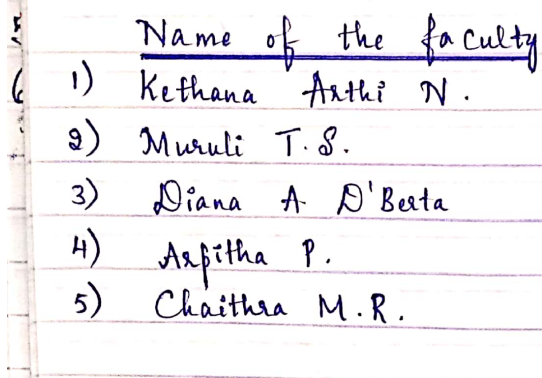 Name of the faculty
1) Kethana Arthi N.
2) Muruli T.S.
3) Diana A D'Berta
4) Arpitha P.
5) Chaithra M.R.